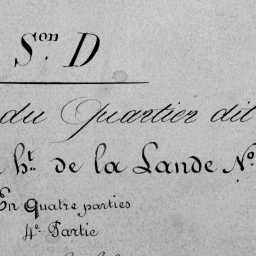 Son. D
du Quartier dit
ht. de la Lande No.
En Quatre parties
4e. Partie